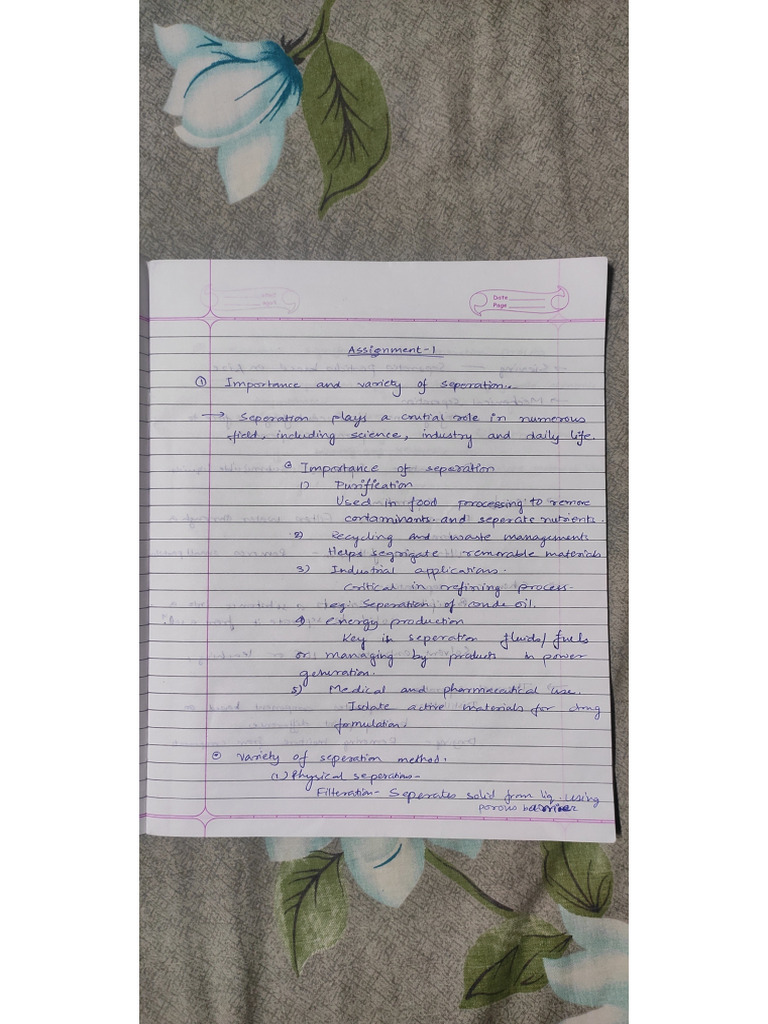 Date
Page
Assignment-1
① Importance and variety of seperation.
→ Seperation plays a crutial role in numerous
field, including science, industry and daily life.
Importance of seperation
1) Purification
Used in food processing to remove
contaminants. and seperate nutrients.
2) Recycling and waste management
Helps segrigate removable materials
3) Industrial applications.
Critical in refining process-
eg:- Seperation of crude oil.
4) energy production
Key in seperation fluids/fuels
or managing by products in power
generation.
5) Medical and pharmaceutical use.
Isolate active materials for drug
formulation.
Variety of seperation method.
(1) Physical seperation-
Filteration- Seperates solid from liq. using
porous barrier